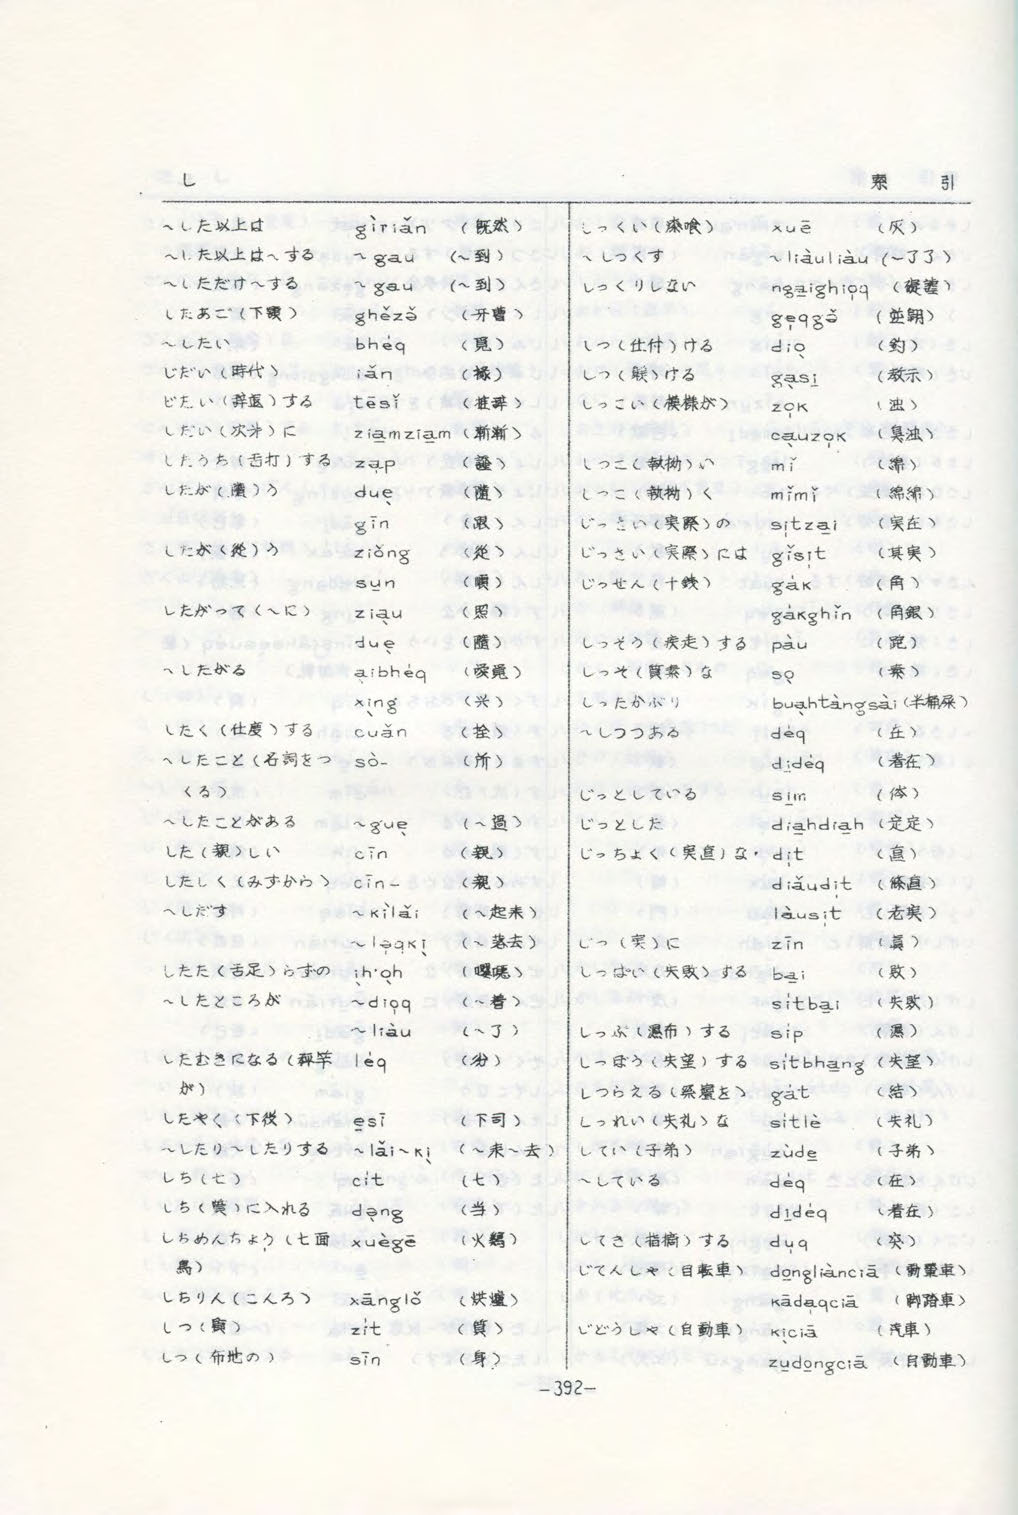 し 索 引
～した以上は gìriǎn (既然)
～した以上は～する ～gau (～到)
～しただけ～する ～gau (～到)
したあご(下顎) ghězǒ (牙曹)
～したい bhéq (覓)
じだい(時代) iǎn (椽)
じたい(辞退)する tēsǐ
しだい(次第)に zia̱mzia̱m (漸漸)
したうち(舌打)する za̩p
したが(隨)う due̩ (隨)
gīn (跟)
したが(從)う ziǒng (從)
su̱n (順)
したがって(～に) zia̩u (照)
due̩ (隨)
～したがる a̩ibhéq (愛覓)
xi̩ng (兴)
したく(仕度)する cuǎn (拴)
～したこと(名詞をつ sò- (所)
くる)
～したことがある ～gue̩ (～過)
した(親)しい cīn (親)
したしく(みずから) cīn- (親)
～しだす ～kìlǎi (～起来)
～la̩qki̩ (～落去)
したた(舌足)らずの i̩h·o̩h
～したところが ～dio̩q (～着)
～liàu (～了)
したむきになる(秤竿 léq
が)
したやく(下役) e̱sī (下司)
～したり～したりする ～lǎi～ki̩ (～来～去)
しち(七) cít (七)
しち(質)に入れる da̩ng (当)
しちめんちょう(七面 xuègē (火鶏)
鳥)
しちりん(こんろ) xānglǒ (烘爐)
しつ(質) zít (質)
しつ(布地の) sīn (身)
しっくい(漆喰) xuē (灰)
～しつくす ～liàuliàu (～了了)
しっくりしない nga̱ighio̩q (礙謔)
ge̩qgǒ (並翱)
しつ(仕付)ける dio̩ (釣)
しつ(躾)ける ga̩si̱ (教示)
しっこい(模様が) zo̩k (浊)
ca̩uzo̩k (臭浊)
しつこ(執拗)い mǐ (綿)
しつこ(執拗)く mǐmǐ (綿綿)
じっさい(実際)の si̩tza̱i (実在)
じっさい(実際)には gǐsi̩t (其実)
じっせん(十銭) gák (角)
gákghǐn (角銀)
しっそう(疾走)する pàu (跑)
しっそ(質素)な so̩ (素)
しったかぶり bua̩htàngsài (半桶屎)
～しつつある déq (在)
di̱déq (着在)
じっとしている si̱m
じっとした dia̱hdia̱h (定定)
じっちょく(実直)な・ di̩t (直)
diǎudi̩t (條直)
làusi̩t (老実)
じっ(実)に zīn (眞)
しっぱい(失敗)する ba̱i (敗)
sítba̱i (失敗)
しっぷ(濕布)する síp (濕)
しつぼう(失望)する sítbha̱ng (失望)
しつらえる(祭壇を) gát (結)
しつれい(失礼)な sítlè (失礼)
してい(子弟) zùde̱ (子弟)
～している déq (在)
di̱déq (着在)
してき(指摘)する du̩q (突)
じてんしゃ(自転車) do̱ngliàncīa
kāda̩qciā (脚踏車)
じどうしゃ(自動車) ki̩ciā (汽車)
zu̱do̱ngciā (自動車)
-392-